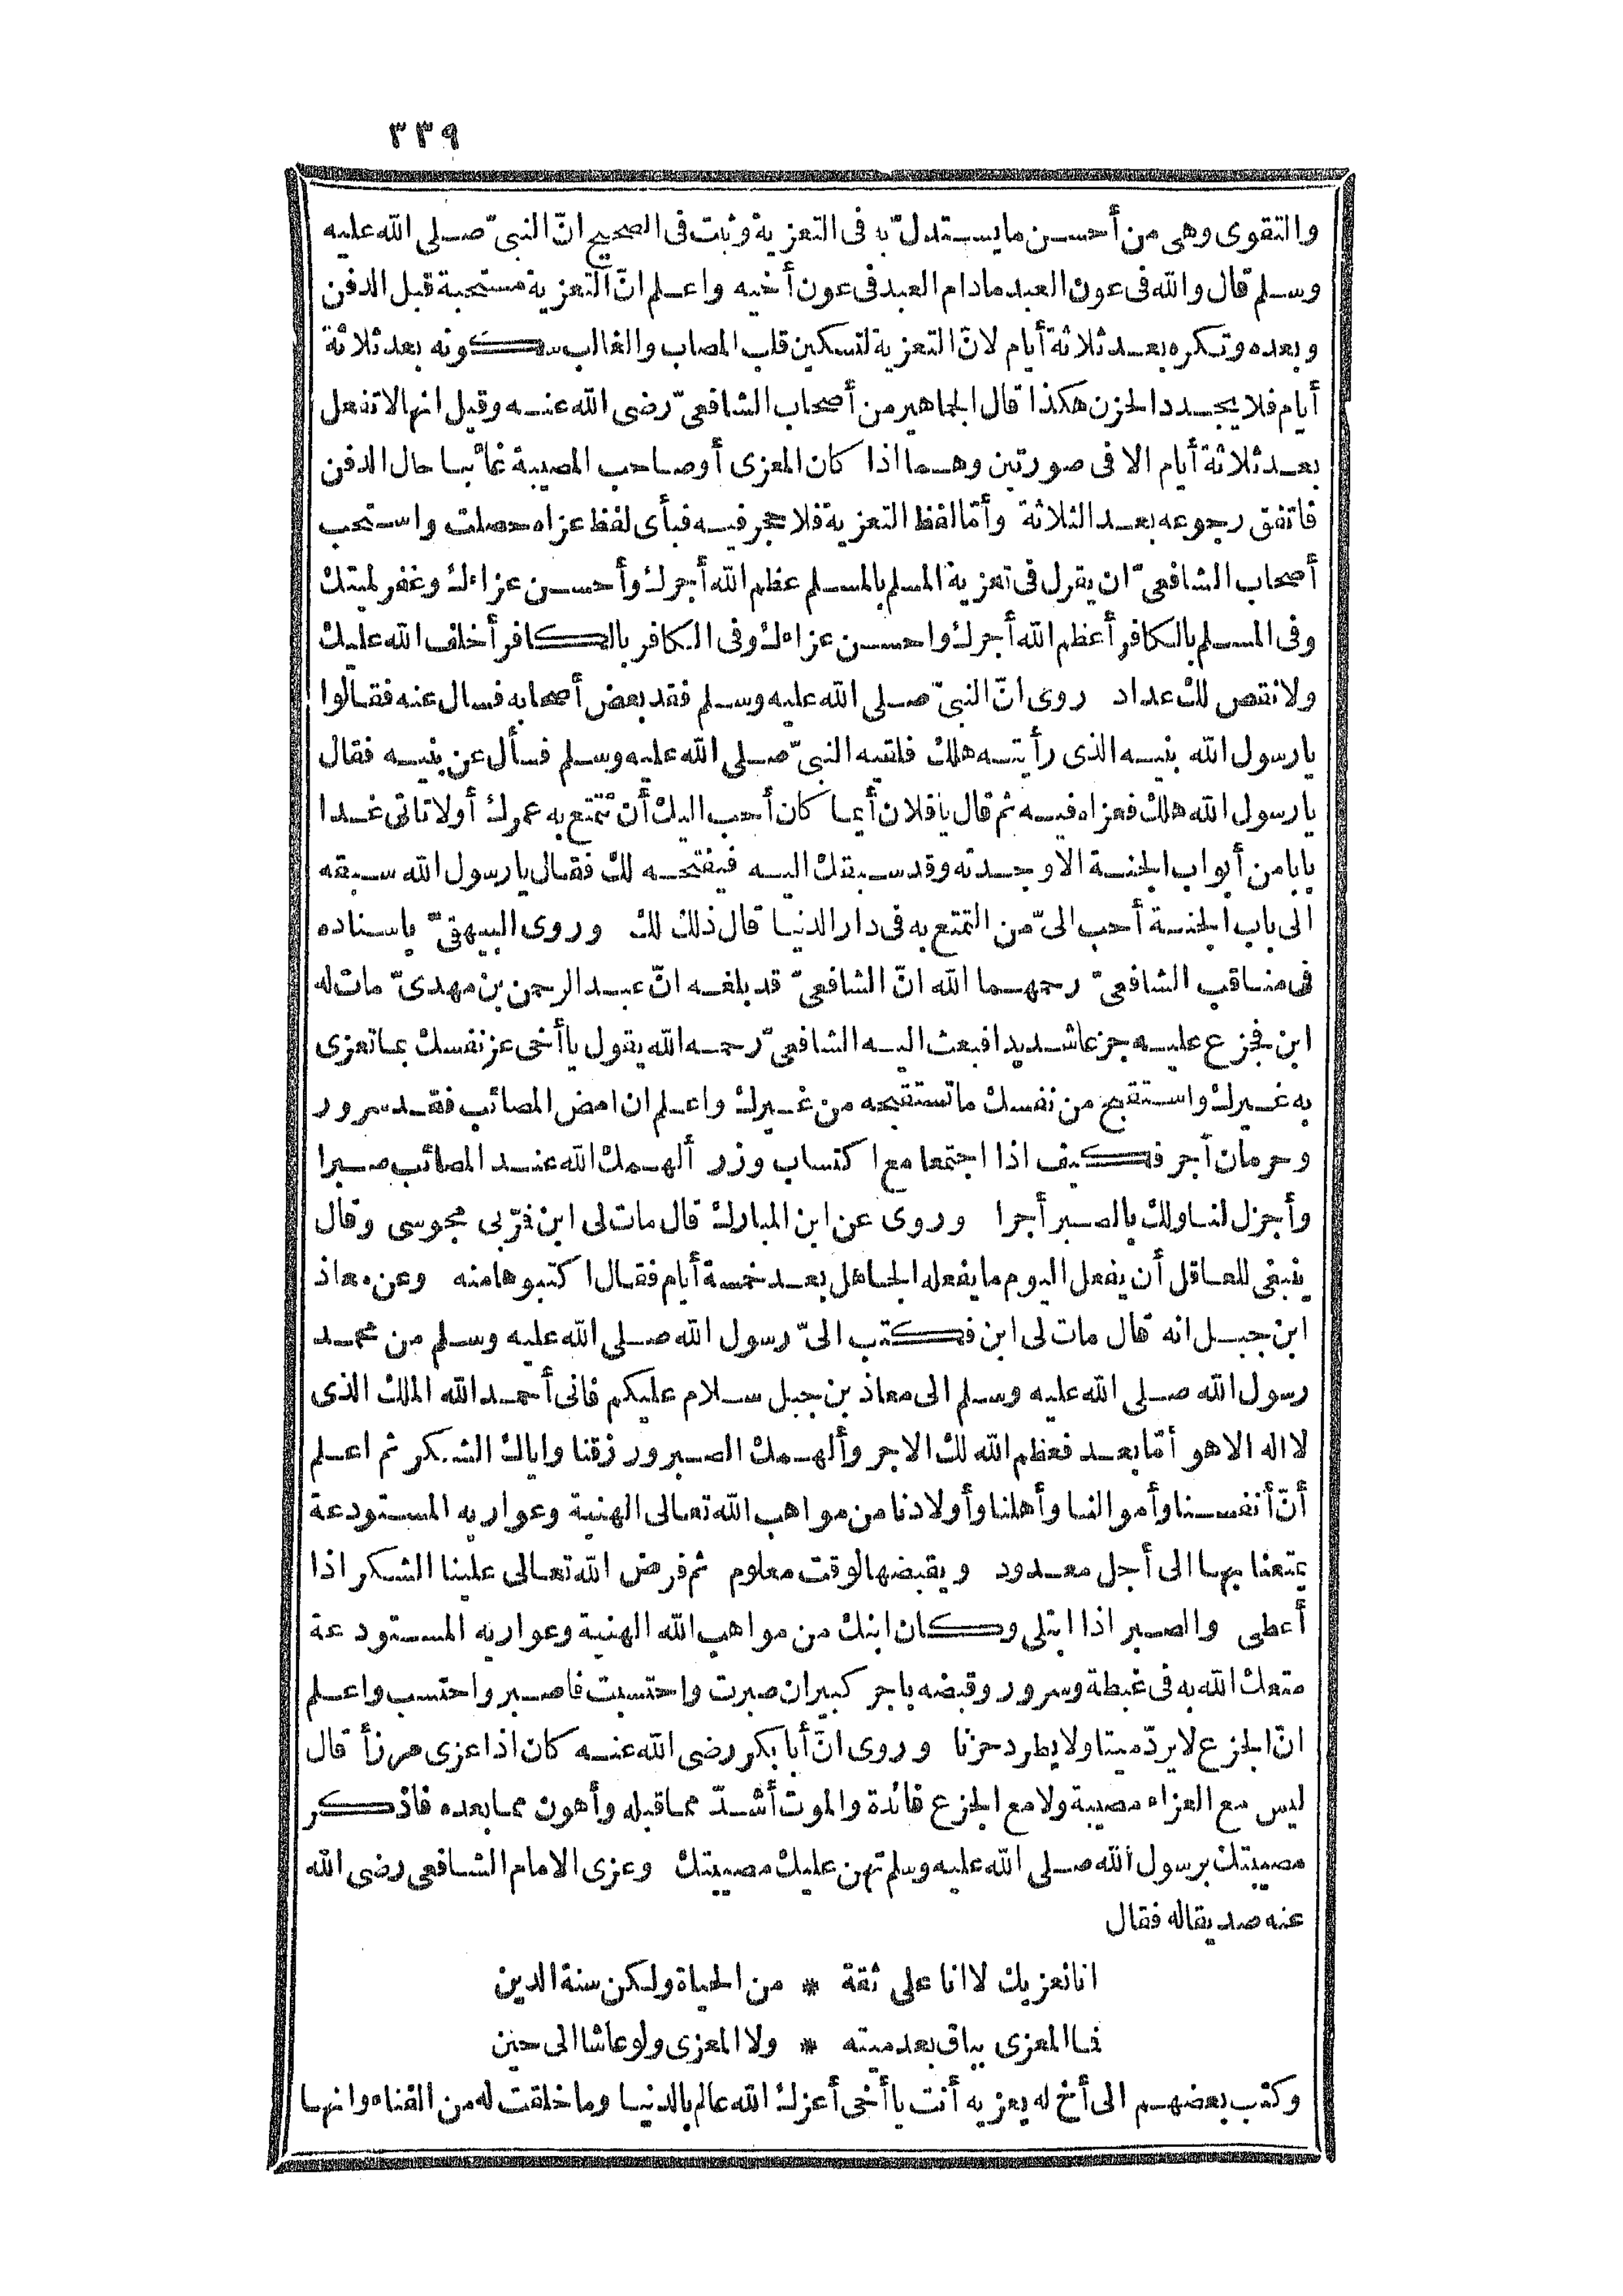 ٣٣٩
والتقوى وهى من أحسن مايستدل به فى التعزية وثبت فى الصحيح انّ النبىّ صلى الله عليه
وسلم قال والله فى عون العبد مادام العبد فى عون أخيه واعلم انّ التعزية مستحبة قبل الدفن
وبعده وتكره بعد ثلاثة أيام لانّ التعزية لتسكين قلب المصاب والغالب سكونه بعد ثلاثة
أيام فلا يجدد الحزن هكذا قال الجماهير من أصحاب الشافعىّ رضى الله عنه وقيل انها لا تفعل
بعد ثلاثة أيام الا فى صورتين وهما اذا كان المعزى أوصاحب المصيبة غائبا حال الدفن
فاتفق رجوعه بعد الثلاثة وأمّا لفظ التعزية فلا حجر فيه فبأى لفظ عزاه حصلت واستحب
أصحاب الشافعىّ ان يقول فى تعزية المسلم بالمسلم عظم الله أجرك وأحسن عزاءك وغفر لميتك
وفى المسلم بالكافر أعظم الله أجرك واحسن عزاءك وفى الكافر بالكافر أخلف الله عليك
ولانقص لك عداد روى انّ النبىّ صلى الله عليه وسلم فقد بعض أصحابه فسال عنه فقالوا
يارسول الله بنيه الذى رأيته هلك فلقيه النبىّ صلى الله عليه وسلم فسأل عن بنيه فقال
يارسول الله هلك فعزاه فيه ثم قال يافلان أيما كان أحب اليك أن تتمتع به عمرك أولا تاتى غدا
بابا من أبواب الجنة الا وجدته وقد سبقك اليه فيفتحه لك فقال يارسول الله سبقه
الى باب الجنة أحب الىّ من التمتع به فى دار الدنيا قال ذلك لك وروى البيهقىّ باسناده
فى مناقب الشافعىّ رحمهما الله انّ الشافعىّ قد بلغه انّ عبد الرحمن بن مهدىّ مات له
ابن فجزع عليه جزعا شديدا فبعث اليه الشافعىّ رحمه الله يقول ياأخى عز نفسك بما تعزى
به غيرك واستقبح من نفسك ماتستقبحه من غيرك واعلم ان امض المصائب فقد سرور
وحرمان أجر فكيف اذا اجتمعا مع اكتساب وزر ألهمك الله عند المصائب صبرا
وأجزل لنا ولك بالصبر أجرا وروى عن ابن المبارك قال مات لى ابن فرّبى مجوسى وقال
ينبغى للعاقل أن يفعل اليوم مايفعله الجاهل بعد خمسة أيام فقال اكتبوها منه وعن معاذ
ابن جبل انه قال مات لى ابن فكتب الىّ رسول الله صلى الله عليه وسلم من محمد
رسول الله صلى الله عليه وسلم الى معاذ بن جبل سلام عليكم فانى أحمد الله الملك الذى
لا اله الا هو أمّا بعد فعظم الله لك الاجر وألهمك الصبر ورزقنا واياك الشكر ثم اعلم
أنّ أنفسنا وأموالنا وأهلنا وأولادنا من مواهب الله تعالى الهنية وعواريه المستودعة
يمتعنا بها الى أجل معدود ويقبضها لوقت معلوم ثم فرض الله تعالى علينا الشكر اذا
أعطى والصبر اذا ابتلى وكان ابنك من مواهب الله الهنية وعواريه المستودعة
متعك الله به فى غبطة وسرور وقبضه باجر كبير ان صبرت واحتسبت فاصبر واحتسب واعلم
انّ الجزع لا يردّ ميتا ولا يطرد حزنا وروى انّ أبا بكر رضى الله عنه كان اذا عزى مرزأ قال
ليس مع العزاء مصيبة ولا مع الجزع فائدة والموت أشدّ مما قبله وأهون مما بعده فاذكر
مصيبتك برسول الله صلى الله عليه وسلم تهن عليك مصيبتك وعزى الامام الشافعى رضى الله
عنه صديقاله فقال
انا نعزيك لا انا على ثقة * من الحياة ولكن سنة الدين
فما المعزى بباق بعد ميته * ولا المعزى ولو عاشا الى حين
وكتب بعضهم الى أخ له يعزيه أنت ياأخى أعزك الله عالم بالدنيا وما خلقت له من الفناء وانها